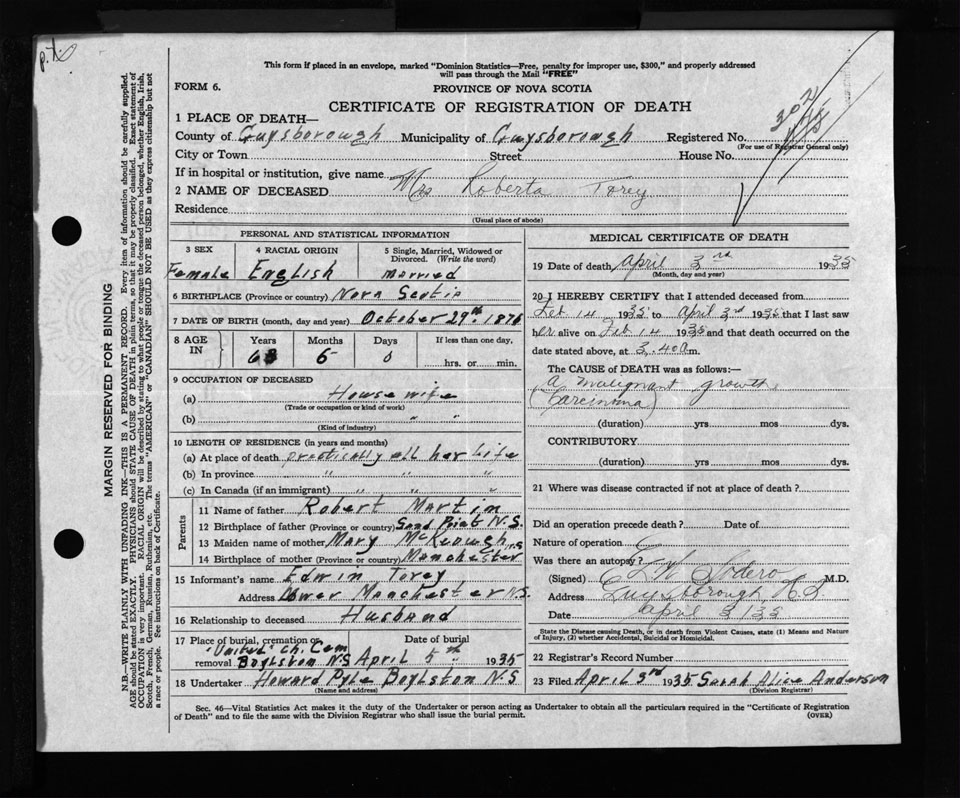 p.t.
This form if placed in an envelope, marked "Dominion Statistics—Free, penalty for improper use, $300," and properly addressed
will pass through the Mail "FREE"
FORM 6.
PROVINCE OF NOVA SCOTIA
CERTIFICATE OF REGISTRATION OF DEATH
302
1 PLACE OF DEATH—
County of Guysborough Municipality of Guysborough Registered No.
(For use of Registrar General only)
City or Town Street House No.
If in hospital or institution, give name
2 NAME OF DECEASED Mrs Roberta Torey
Residence
(Usual place of abode)
PERSONAL AND STATISTICAL INFORMATION
3 SEX 4 RACIAL ORIGIN 5 Single, Married, Widowed or
Divorced. (Write the word)
Female English married
6 BIRTHPLACE (Province or country) Nova Scotia
7 DATE OF BIRTH (month, day and year) October 29th. 1876
8 AGE IN Years Months Days If less than one day,
6 5 0 hrs. or min.
9 OCCUPATION OF DECEASED
(a) Housewife
(Trade or occupation or kind of work)
(b) " "
(Kind of industry)
10 LENGTH OF RESIDENCE (in years and months)
(a) At place of death practically all her life
(b) In province " " "
(c) In Canada (if an immigrant) " " "
Parents
11 Name of father Robert Martin
12 Birthplace of father (Province or country) Sand Point N.S.
13 Maiden name of mother Mary McKeough
14 Birthplace of mother (Province or country) Manchester N.S
15 Informant's name Edwin Torey
Address Lower Manchester N.S.
16 Relationship to deceased Husband
17 Place of burial, cremation or removal Date of burial
"United" Ch. Cem
Boylston N.S April 5th 1935
18 Undertaker Howard Pyle Boylston N.S
(Name and address)
MEDICAL CERTIFICATE OF DEATH
19 Date of death April 3rd 1935
(Month, day and year)
20 I HEREBY CERTIFY that I attended deceased from
Feb 14 1935 to April 3rd 1935 that I last saw
her alive on Feb 14 1935 and that death occurred on the
date stated above, at 3.40 a m.
The CAUSE of DEATH was as follows:—
a malignant growth
(Carcinoma)
(duration) yrs. mos. dys.
CONTRIBUTORY
(duration) yrs. mos. dys.
21 Where was disease contracted if not at place of death?
Did an operation precede death? Date of
Nature of operation
Was there an autopsy?
(Signed) Sodero M.D.
Address Guysborough N.S
Date April 3 135
State the Disease causing Death, or in death from Violent Causes, state (1) Means and Nature
of Injury, (2) whether Accidental, Suicidal or Homicidal.
22 Registrar's Record Number
23 Filed April 3rd 1935 Sarah Alice Anderson
(Division Registrar)
Sec. 46—Vital Statistics Act makes it the duty of the Undertaker or person acting as Undertaker to obtain all the particulars required in the "Certificate of Registration
of Death" and to file the same with the Division Registrar who shall issue the burial permit. (OVER)
MARGIN RESERVED FOR BINDING
N.B.—WRITE PLAINLY WITH UNFADING INK—THIS IS A PERMANENT RECORD. Every item of information should be carefully supplied.
AGE should be stated EXACTLY. PHYSICIANS should STATE CAUSE OF DEATH in plain terms, so that it may be properly classified. Exact statement of
OCCUPATION is very important. RACIAL ORIGIN will be described by stating to what people or tongue the deceased person belonged, whether English, Irish,
Scotch, French, German, Russian, Ruthenian, etc. The terms "AMERICAN" or "CANADIAN" SHOULD NOT BE USED as they express citizenship but not
a race or people. See instructions on back of Certificate.